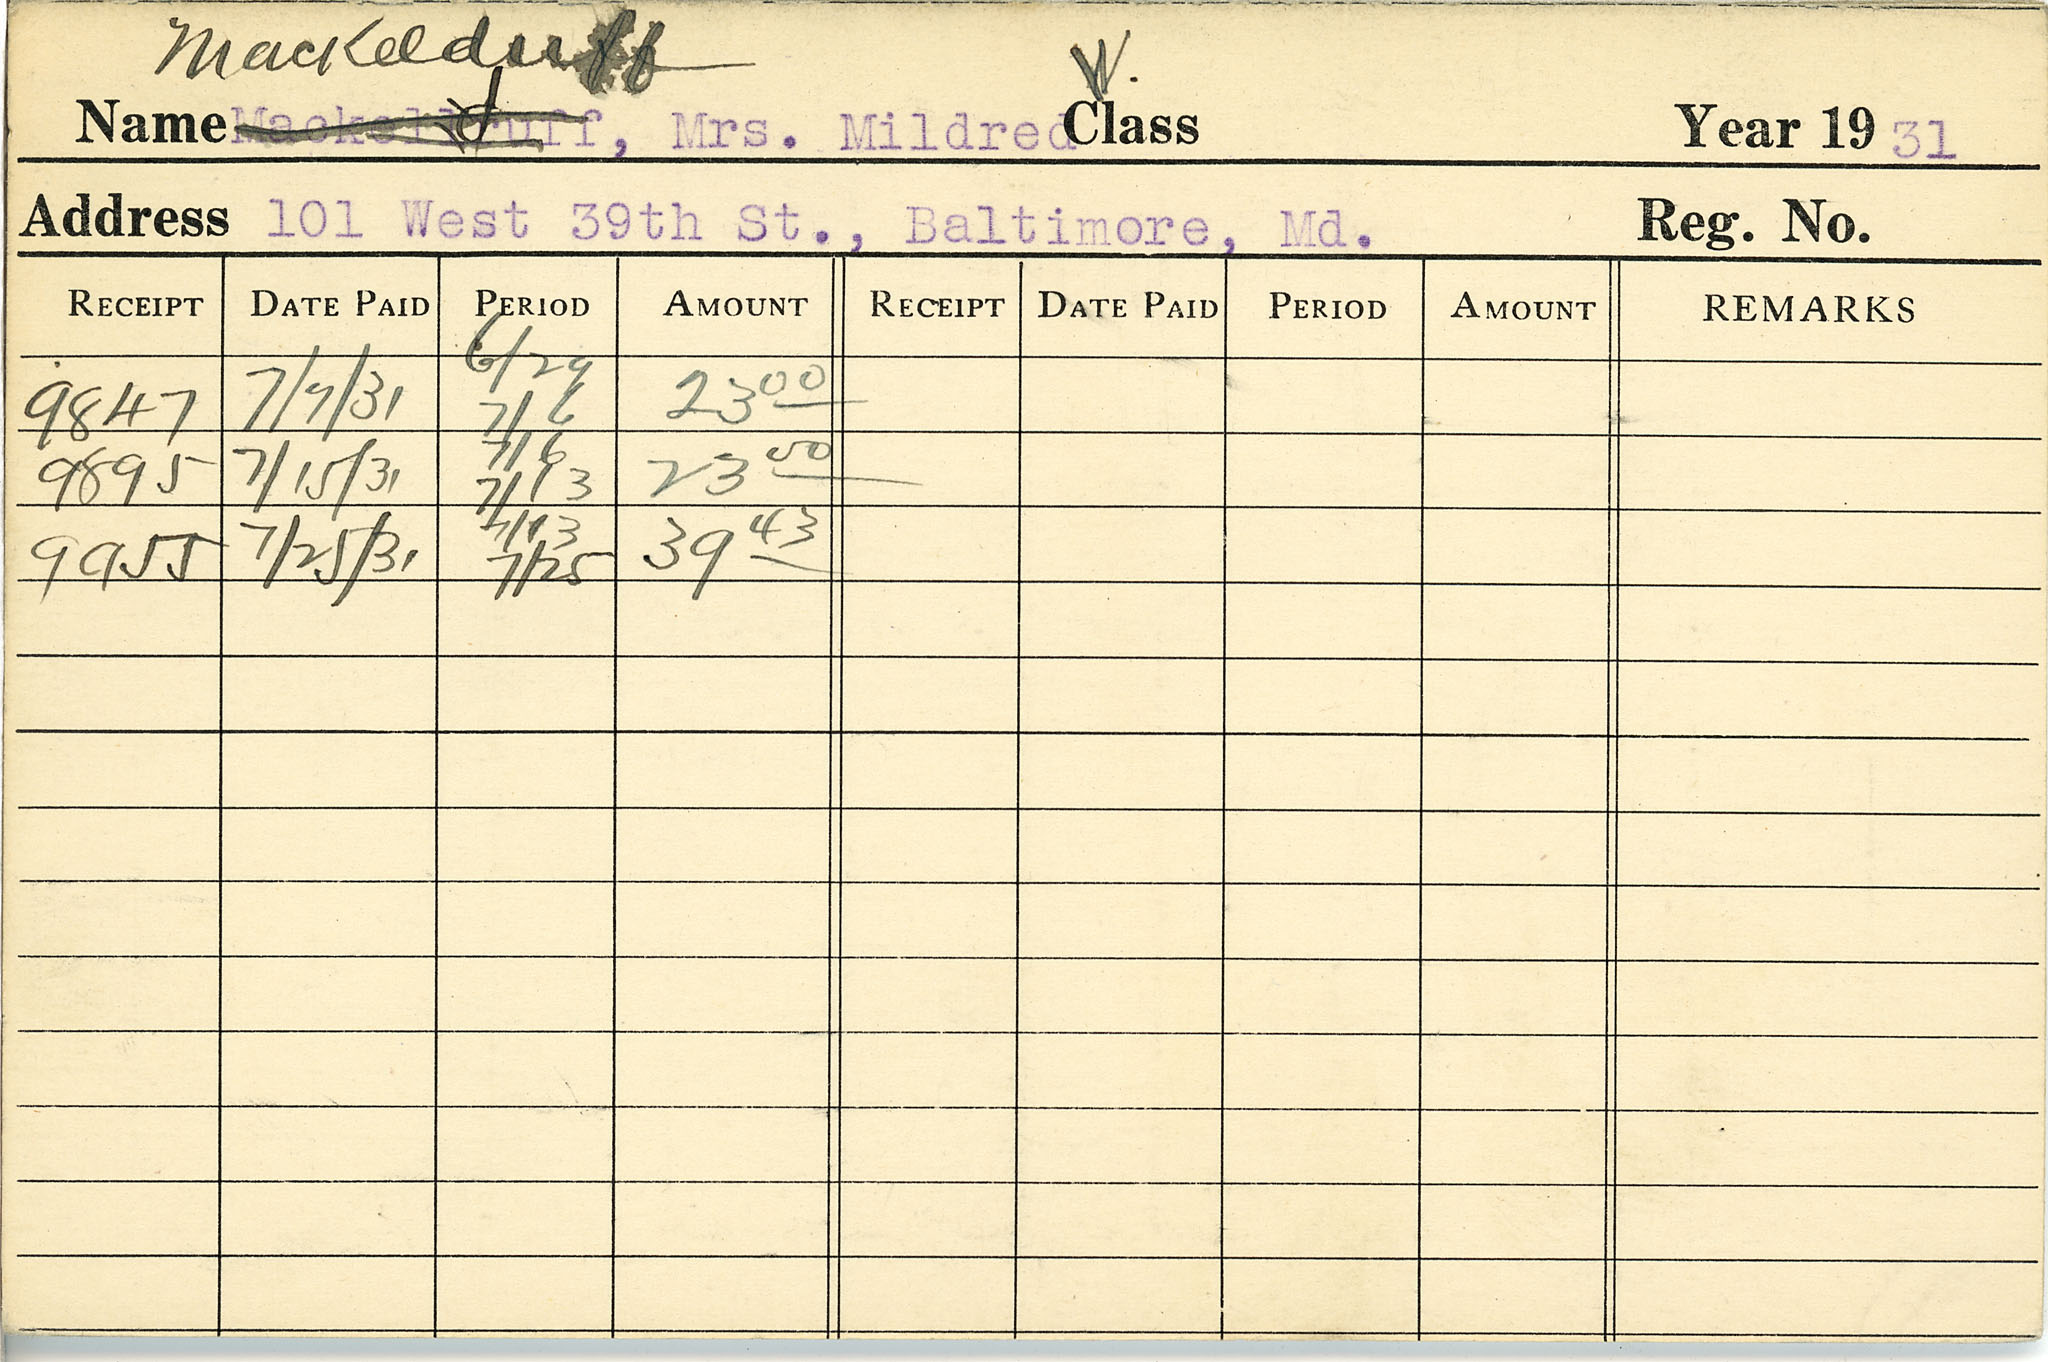 Mackelduff W.
Name Mackeldruff, Mrs. Mildred Class Year 19 31
Address 101 West 39th St., Baltimore, Md. Reg. No.
RECEIPT DATE PAID PERIOD AMOUNT RECEIPT DATE PAID PERIOD AMOUNT REMARKS
6/29
9847 7/7/31 7/6 23 00
7/6
9895 7/15/31 7/13 23 00
7/13
9955 7/25/31 7/25 39 43